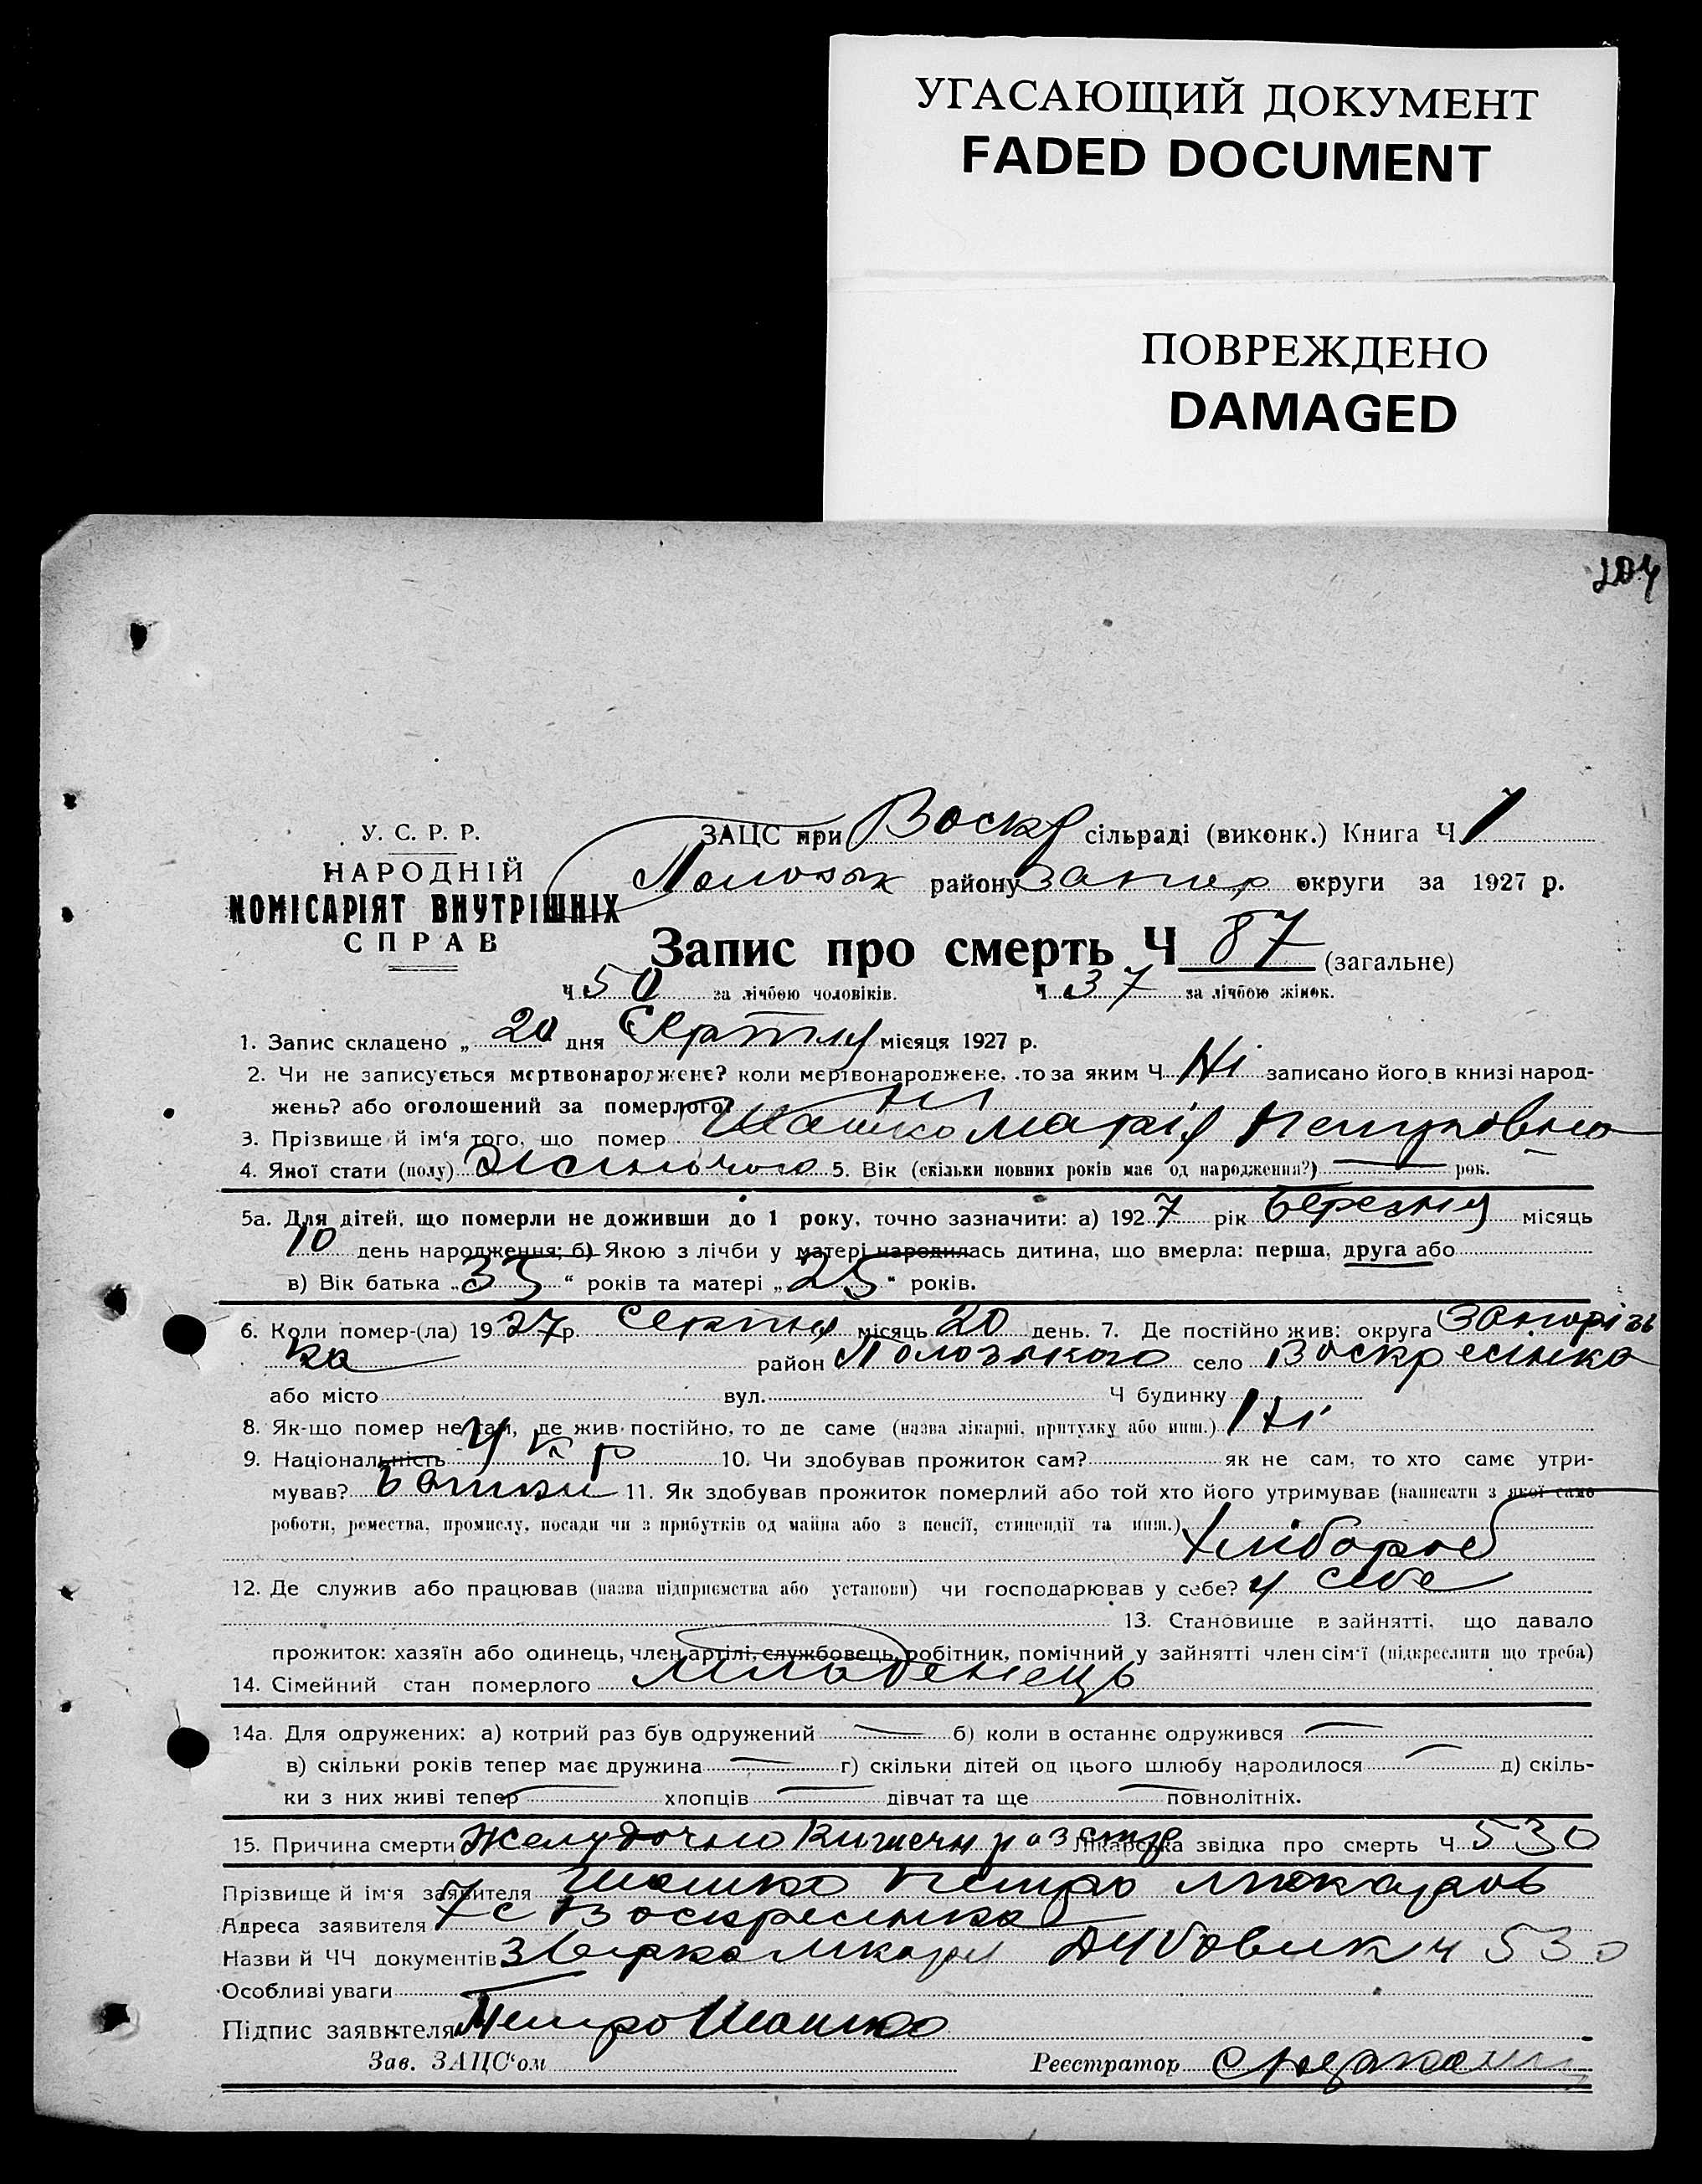 УГАСАЮЩИЙ ДОКУМЕНТ
FADED DOCUMENT
ПОВРЕЖДЕНО
DAMAGED
204
У. С. Р. Р.
НАРОДНІЙ
КОМІСАРІЯТ ВНУТРІШНІХ
СПРАВ
ЗАЦС при Воскр сільраді (виконк.) Книга Ч 1
Пологзьк району Запор округи за 1927 р.
Запис про смерть Ч 87 (загальне)
Ч 50 за лічбою чоловіків. Ч 37 за лічбою жінок.
1. Запис складено „ 20 дня Серпню місяця 1927 р.
2. Чи не записується мертвонароджене? коли мертвонароджене, то за яким Ч Ні записано його в книзі народ-
жень? або оголошений за померлого? Ні
3. Прізвище й ім'я того, що помер Шашко Марія Петровна
4. Якої стати (полу) Жіночого 5. Вік (скільки повних років має од народження?) — рок.
5а. Для дітей, що померли не доживши до 1 року, точно зазначити: а) 1927 рік березню місяць
10 день народження; б) Якою з лічби у матері народилась дитина, що вмерла: перша, друга або
в) Вік батька „35“ років та матері „25“ років.
6. Коли помер-(ла) 1927р. Серпню місяць 20 день. 7. Де постійно жив: округа Запорізь
ка район Пологзького село Воскресенка
або місто вул. Ч будинку
8. Як-що помер не там, де жив постійно, то де саме (назва лікарні, притулку або инш.) Ні
9. Національність Укр 10. Чи здобував прожиток сам? як не сам, то хто саме утри-
мував? батьки 11. Як здобував прожиток померлий або той хто його утримував (написати з якої само
роботи, ремества, промислу, посади чи з прибутків од майна або з пенсії, стипендії та инш.)
хлібороб
12. Де служив або працював (назва підприємства або установи) чи господарював у себе? у себе
13. Становище в зайнятті, що давало
прожиток: хазяїн або одинець, член артілі, службовець, робітник, помічний у зайнятті член сім'ї (підкреслити що треба)
14. Сімейний стан померлого младенець
14а. Для одружених: а) котрий раз був одружений — б) коли в останнє одружився —
в) скільки років тепер має дружина — г) скільки дітей од цього шлюбу народилося — д) скіль-
ки з них живі тепер — хлопців — дівчат та ще — повнолітніх.
15. Причина смерти Желудочно кишечн разстр Лікарська звідка про смерть Ч 530
Прізвище й ім'я заявителя Шашко Петро Макаров
Адреса заявителя с Воскресенка
Назви й ЧЧ документів Дубовик ч 530
Особливі уваги
Підпис заявителя Петро Шашко
Зав. ЗАЦС'ом Реєстратор